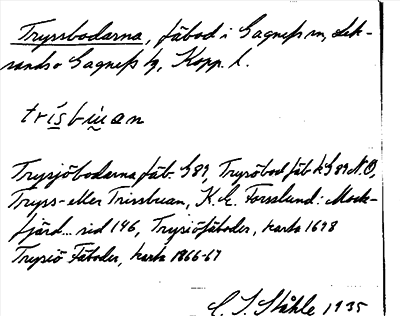 Tryssbodarna, fäbod i Gagnefs sn, Lek-
sands o Gagnefs tg, Kopp. l.
trísbùan
Trysjöbodarna fäb. G 89, Trysöbod fäb k G 89 N.O,
Tryss- eller Trissbuan, K. E. Forsslund: Mock-
fjärd... sid 146, Trysiöfäboder, karta 1698
Trysiö Fäboder, karta 1866-67
C. I. Ståhle 1935